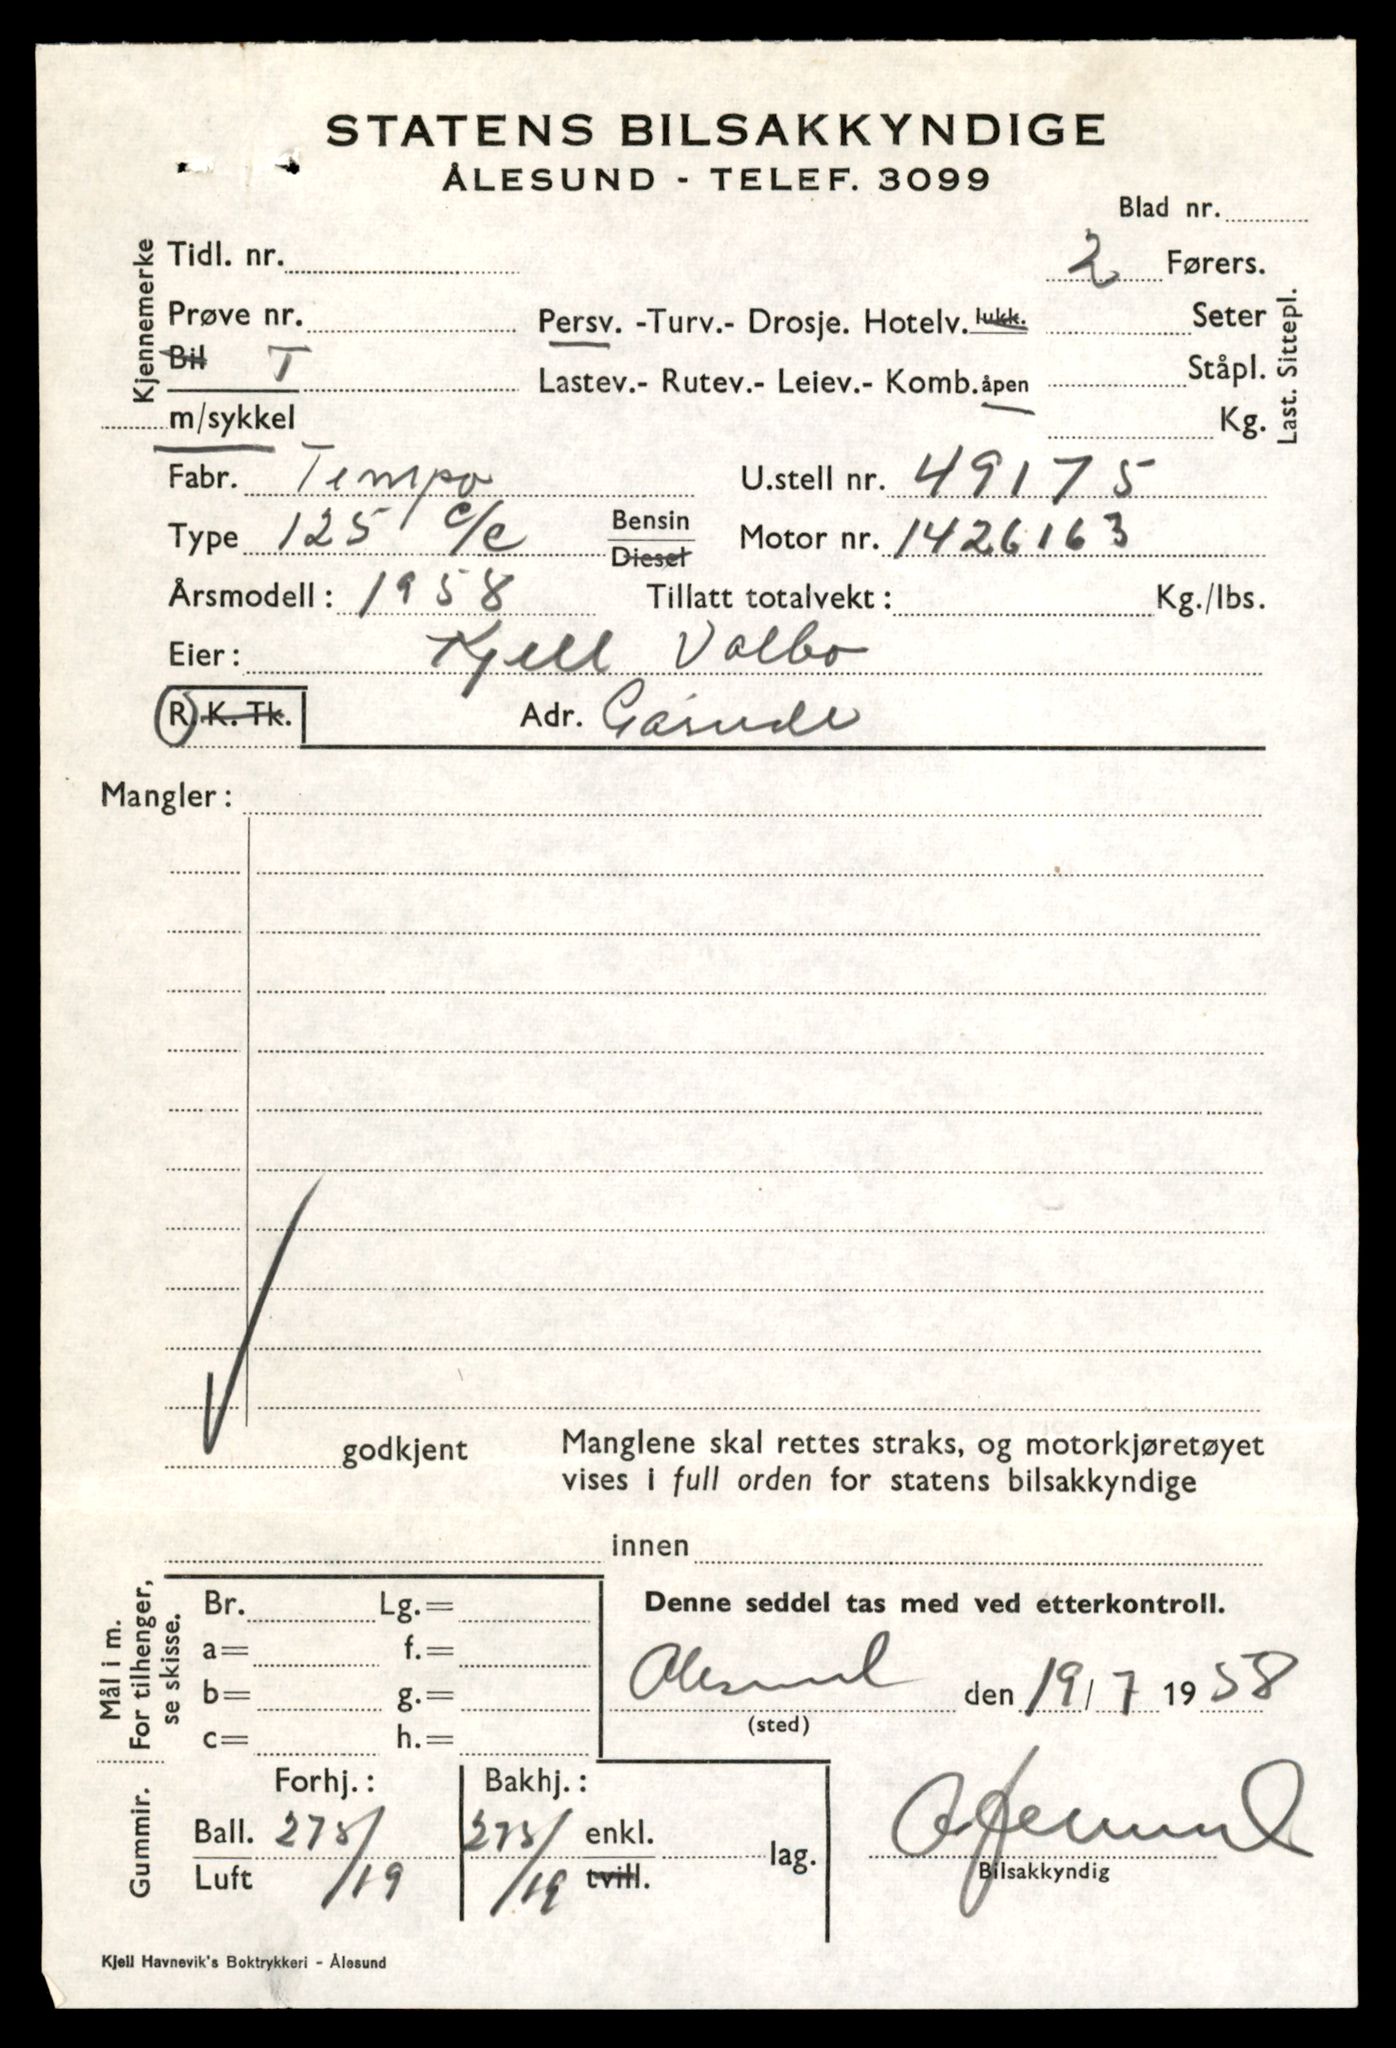 STATENS BILSAKKYNDIGE
ÅLESUND - TELEF. 3099
Blad nr.
Kjennemerke
Tidl. nr.
2 Førers.
Prøve nr. Persv. -Turv.- Drosje. Hotelv. lukk. Seter
Bil T Lastev.- Rutev.- Leiev.- Komb. åpen Ståpl.
m/sykkel Kg.
Last. Sittepl.
Fabr. Tempo U.stell nr. 49175
Type 125 c/c Bensin Diesel Motor nr. 1426163
Årsmodell: 1958 Tillatt totalvekt: Kg./lbs.
Eier: Kjell Valbo
R. K. Tk. Adr.
Mangler:
godkjent Manglene skal rettes straks, og motorkjøretøyet
vises i full orden for statens bilsakkyndige
innen
Mål i m.
For tilhenger,
se skisse.
Br. Lg.= Denne seddel tas med ved etterkontroll.
a= f.=
b= g.= Ålesund den 19/7 1958
(sted)
c= h.=
Gummir.
Forhj.: Bakhj.:
Ball. 275/ 275/ enkl. lag.
Luft /19 /19 tvill.
Bilsakkyndig
Kjell Havnevik's Boktrykkeri - Ålesund